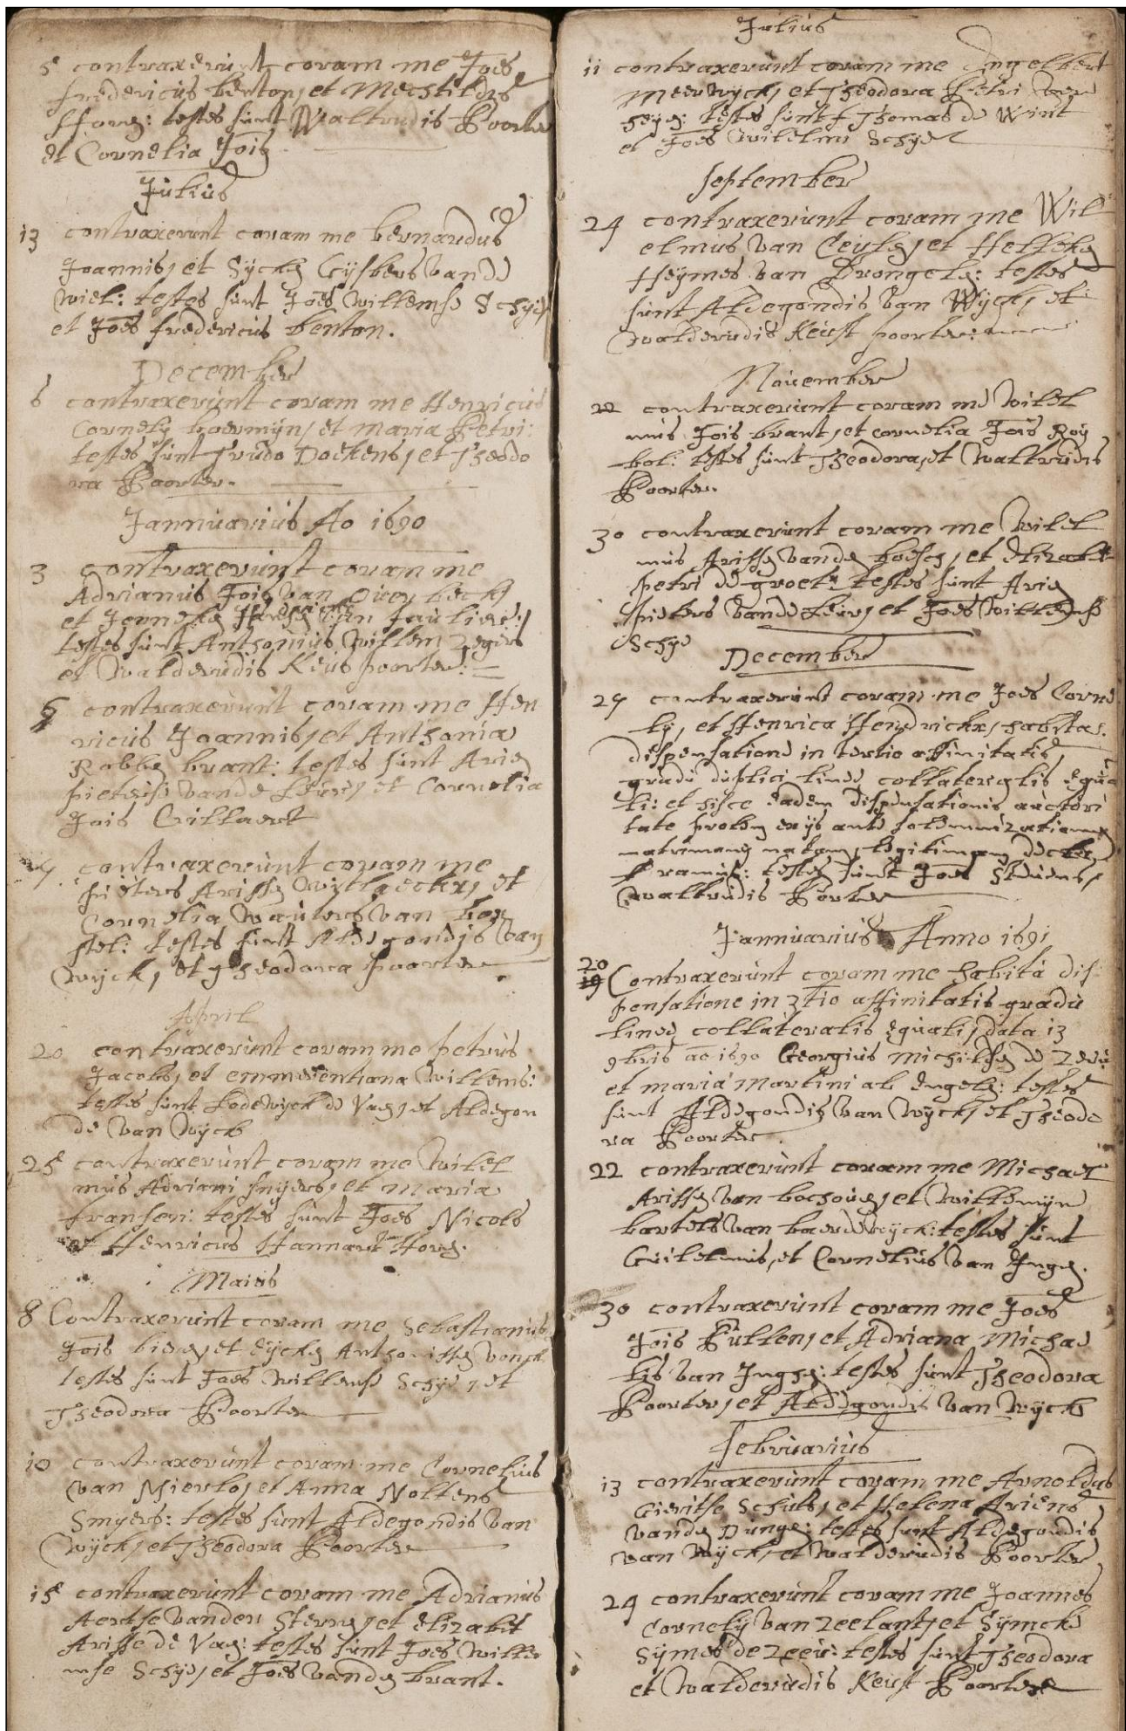 5 contraxerunt coram me Joes
fredericus benton, et Mechtildis
testes sunt Waltrudis Poorter
et Cornelia Jois
Julius
13 contraxerunt coram me bernardus
Joannis, et Sycke Gysbers vande
wiel: testes sunt Joes Willemse Schyf
et Joes fredericus benton.
December
6 contraxerunt coram me Henricus
Cornely et maria Petri:
testes sunt Trudo Doekens, et Theodo
ra Poorter.
Jannuarius Ao 1690
3 contraxerunt coram me
Adrianus Jois van
et Jenneke
testes sunt Anthonius Willem Zegers
et Walderudis Keus poorter:
6 contraxerunt coram me Hen
ricus Joannis, et Anthonia
Rabbe brant: testes sunt Arien
pieterse vande Leur, et Cornelia
Jois Gillaert
contraxerunt coram me
pieters Arisse et
Cornelia Wauters van box
stel: testes sunt Aldegondis van
Wyck, et Theodora poorter
April
20 contraxerunt coram me petrus
Jacobs, et emmerentiana Willems:
testes sunt Lodewyck de Vag, et Aldegon
de van Wyck
25 contraxerunt coram me Wilel
mus Adriani snyers, et Maria
fransen: testes sunt Joes Nicols
et Henricus Hannart
Maius
8 Contraxerunt coram me Sebastianus
Jois et Eycke Anthonisse vonck
testes sunt Joes Willemse Schyf, et
Theodora Poorter
10 contraxerunt coram me Cornelius
van Mierlo, et Anna Noltens
Smyers: testes sunt Aldegondis van
Wyck, et Theodora Poorter
15 contraxerunt coram me Adrianus
Aertse vanden Sterre, et Elizabet
Arisse de Vag: testes sunt Joes Wille
mse Schyf, et Joes vande brant.
Julius
11 contraxerunt coram me Engelbert
Meerwyck, et Theodora Petri
testes sunt Thomas de Wint
et Joes Wilelmi Schyf
September
24 contraxerunt coram me Wil
elmus van et Helleke
Heymes van Drongele: testes
sunt Aldegondis van Wyck, et
Walderudis Keust poorter:
November
22 contraxerunt coram me Wilel
mus Jois brant, et Cornelia Jois Roy
bol: testes sunt Theodora, et Waltrudis
Poorter.
30 contraxerunt coram me Wilel
mus Arisse vande bosch, et Elizabet
petri de groet: testes sunt Arien
pieters vande Leur, et Joes Willemse
Schyf
December
29 contraxerunt coram me Joes Corne
ly, et Henrica Hendrickx, habita
dispensatione in tertio affinitatis
gradu duplici lineae collateralis aequa
li: et hisce eadem dispensationis auctori
tate prolem ex ijs ante solemnizationem
matrimony natam, legitimam decla
ramus: testes sunt Joes Stevens,
Waltrudis Porter
Jannuarius Anno 1691
20
19 Contraxerunt coram me habita dis
pensatione in 3tio affinitatis gradu
lineae collateralis aequali, data 13
9bris ao 1690 Georgius de Zeeu
et maria Martini ab Engele: testes
sunt Aldegondis van Wyck, et Theodo
ra Poorter.
22 contraxerunt coram me Michael
Arisse van bochove, et Willemyn
bartels van baerdwyck: testes sunt
Guilelmus, et Cornelius van Ingen.
30 contraxerunt coram me Joes
Jois Rutten, et Adriana Michae
lis van Inghen: testes sunt Theodora
Poorter, et Aldegondis van Wyck
Februarius
13 contraxerunt coram me Arnoldus
Gieritse Schuts, et Helena Ariens
vande Dunge: testes sunt Aldegondis
van Wyck, et Walderudis Poorter
24 contraxerunt coram me Joannes
Cornely van Zeelant, et Symcke
Symes de Zeeu: testes sunt Theodora
et Walderudis Keust Poorter